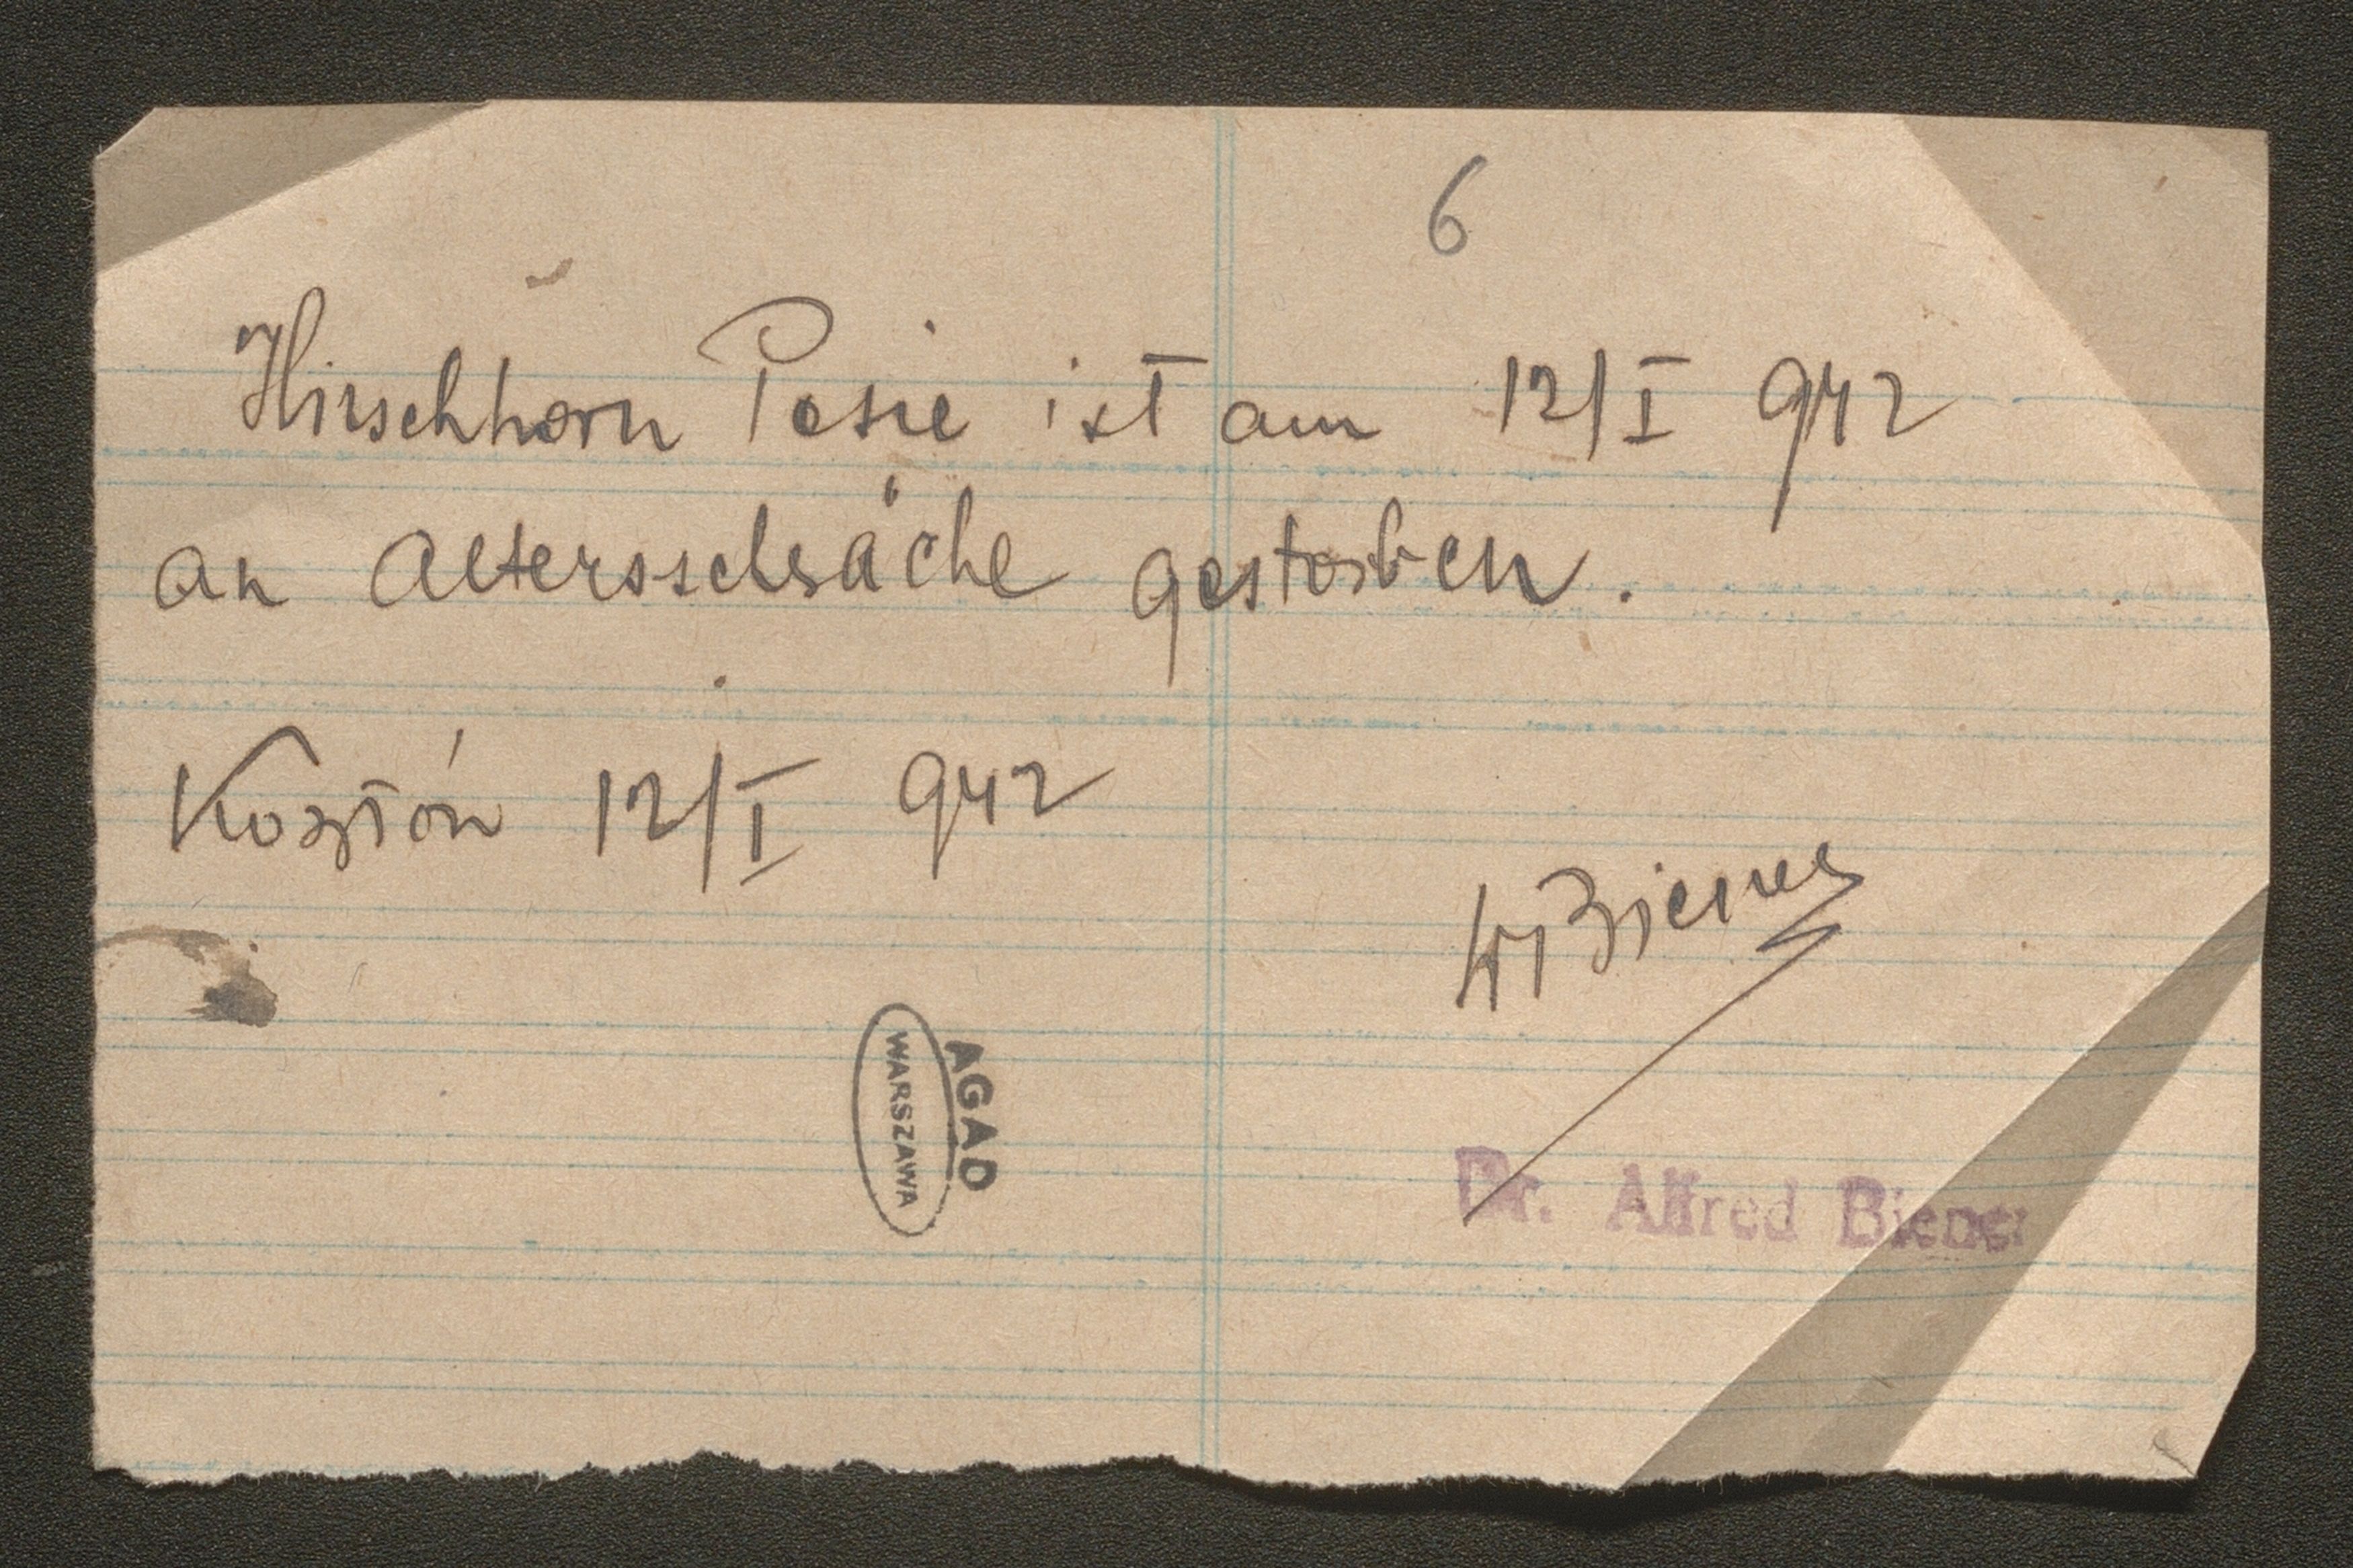 6
Hirschhorn Pesie ist am 12/I 942
an Altersschsäche gestorben.
Kozłów 12/I 942
Biener
AGAD
WARSZAWA
Dr. Alfred Biener